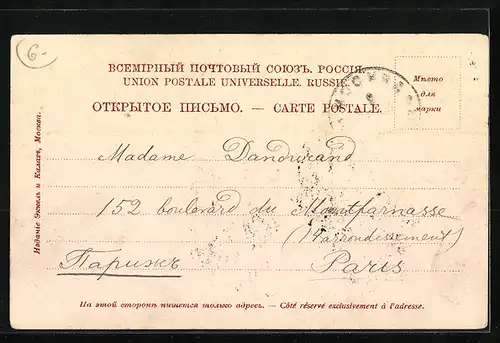 6-
ВСЕМІРНЫЙ ПОЧТОВЫЙ СОЮЗЪ. РОССІЯ.
UNION POSTALE UNIVERSELLE. RUSSIE.
ОТКРЫТОЕ ПИСЬМО. — CARTE POSTALE.
МОСКВА
Мѣсто
для
марки
Madame Dandurand
152 boulevard du Montparnasse
(14 arrondissement)
Парижъ
Paris
На этой сторонѣ пишется только адресъ. — Côté réservé exclusivement à l'adresse.
Изданіе Эккель и Калахъ, Москва.